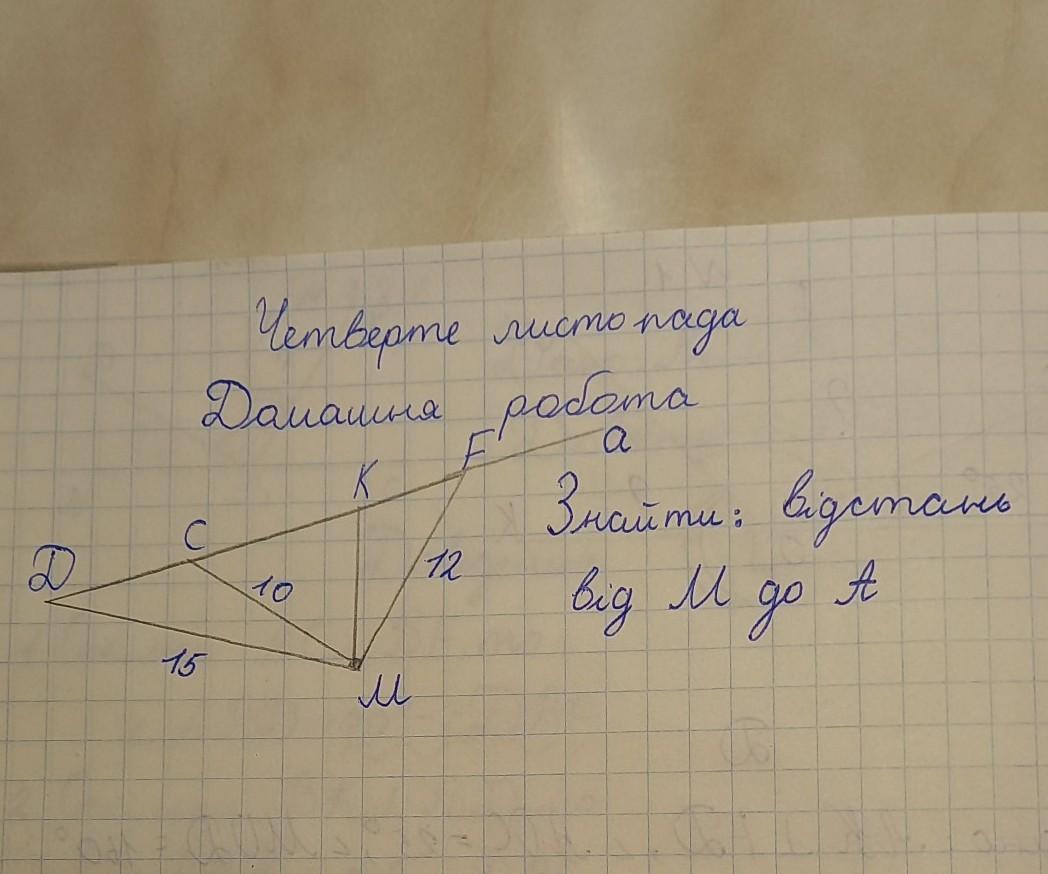 Четверте листопада
Домашня робота
F
a
K
Знайти: відстань
C
Д
12
10
від М до А
15
М